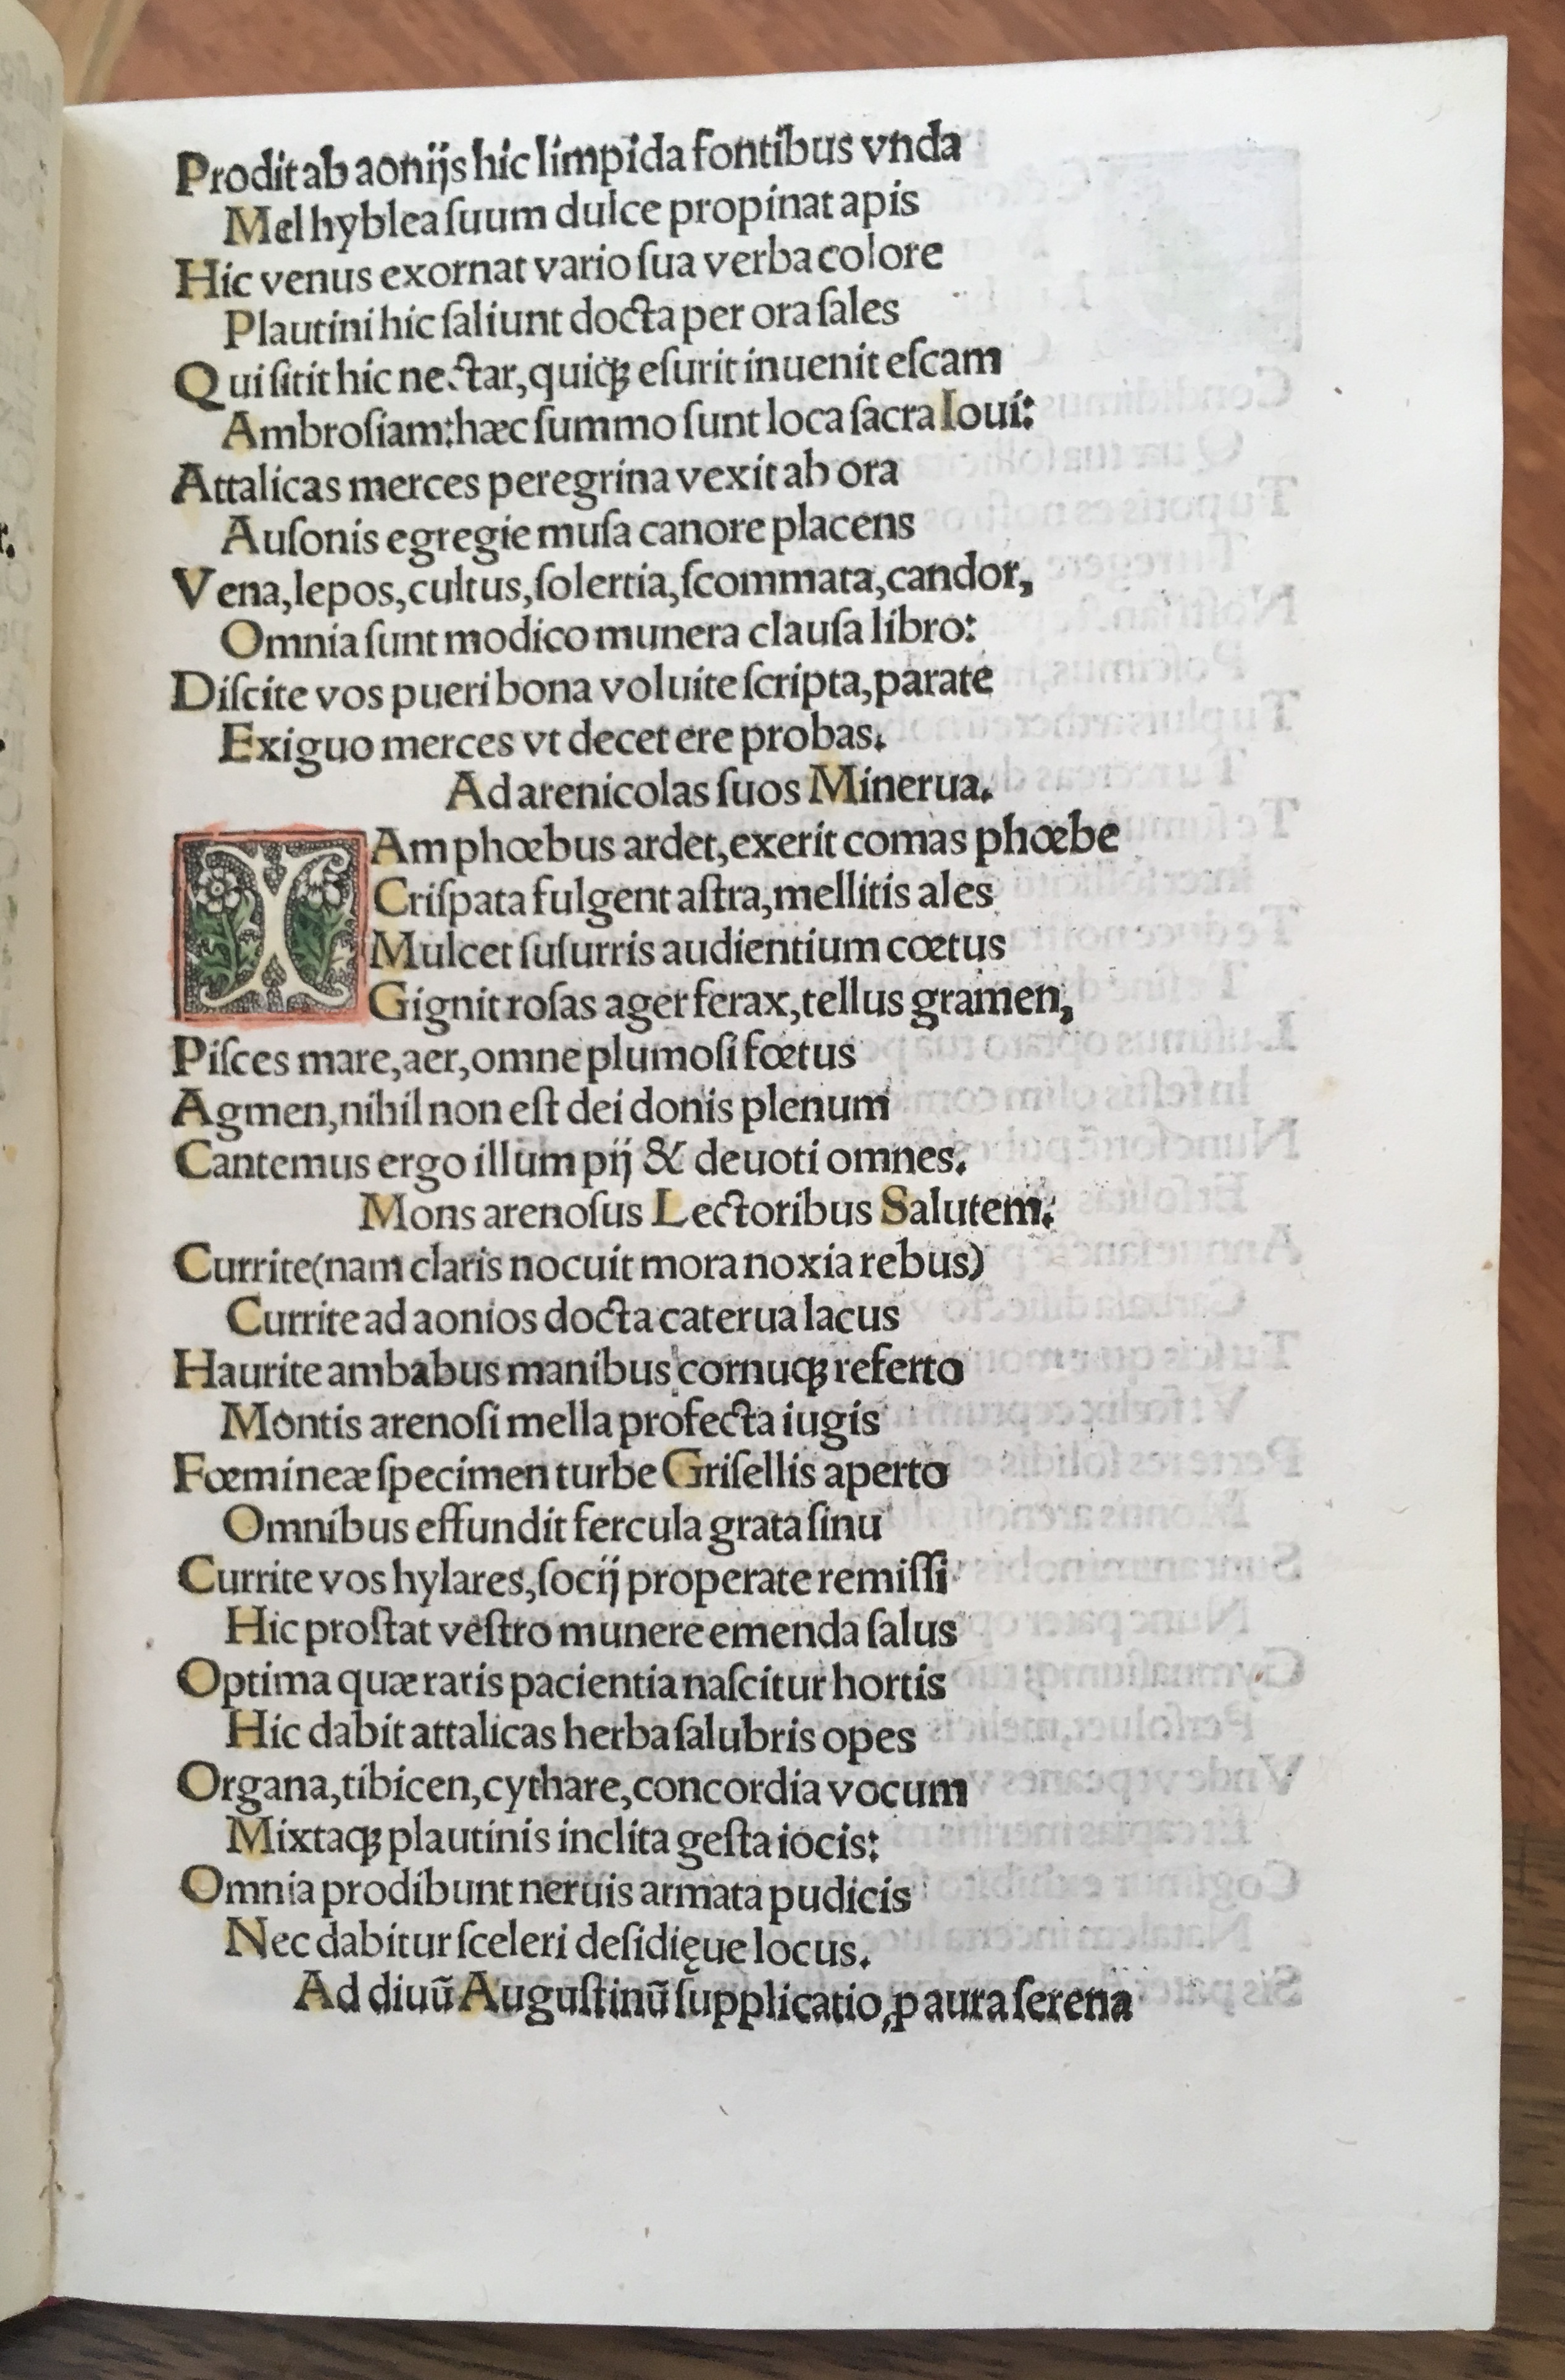 Prodit ab aonijs hic limpida fontibus vnda
Mel hyblea ſuum dulce propinat apis
Hic venus exornat vario ſua verba colore
Plautini hic ſaliunt docta per ora ſales
Qui ſitit hic nectar, quiqꝫ eſurit inuenit eſcam
Ambroſiam: hæc ſummo ſunt loca ſacra Ioui:
Attalicas merces peregrina vexit ab ora
Auſonis egregie muſa canore placens
Vena, lepos, cultus, ſolertia, ſcommata, candor,
Omnia ſunt modico munera clauſa libro:
Diſcite vos pueri bona voluite ſcripta, parate
Exiguo merces vt decet ere probas.
Ad arenicolas ſuos Minerua.
IAm phœbus ardet, exerit comas phœbe
Criſpata fulgent aſtra, mellitis ales
Mulcet ſuſurris audientium cœtus
Gignit roſas ager ferax, tellus gramen,
Piſces mare, aer, omne plumoſi fœtus
Agmen, nihil non eſt dei donis plenum
Cantemus ergo illum pij & deuoti omnes.
Mons arenoſus Lectoribus Salutem.
Currite (nam claris nocuit mora noxia rebus)
Currite ad aonios docta caterua lacus
Haurite ambabus manibus cornuqꝫ referto
Montis arenoſi mella profecta iugis
Fœmineæ ſpecimen turbe Griſellis aperto
Omnibus effundit fercula grata ſinu
Currite vos hylares, ſocij properate remiſſi
Hic proſtat veſtro munere emenda ſalus
Optima quæ raris pacientia naſcitur hortis
Hic dabit attalicas herba ſalubris opes
Organa, tibicen, cythare, concordia vocum
Mixtaqꝫ plautinis inclita geſta iocis:
Omnia prodibunt neruis armata pudicis
Nec dabitur ſceleri deſidięue locus.
Ad diuū Auguſtinū ſupplicatio, ꝓ aura ſerena